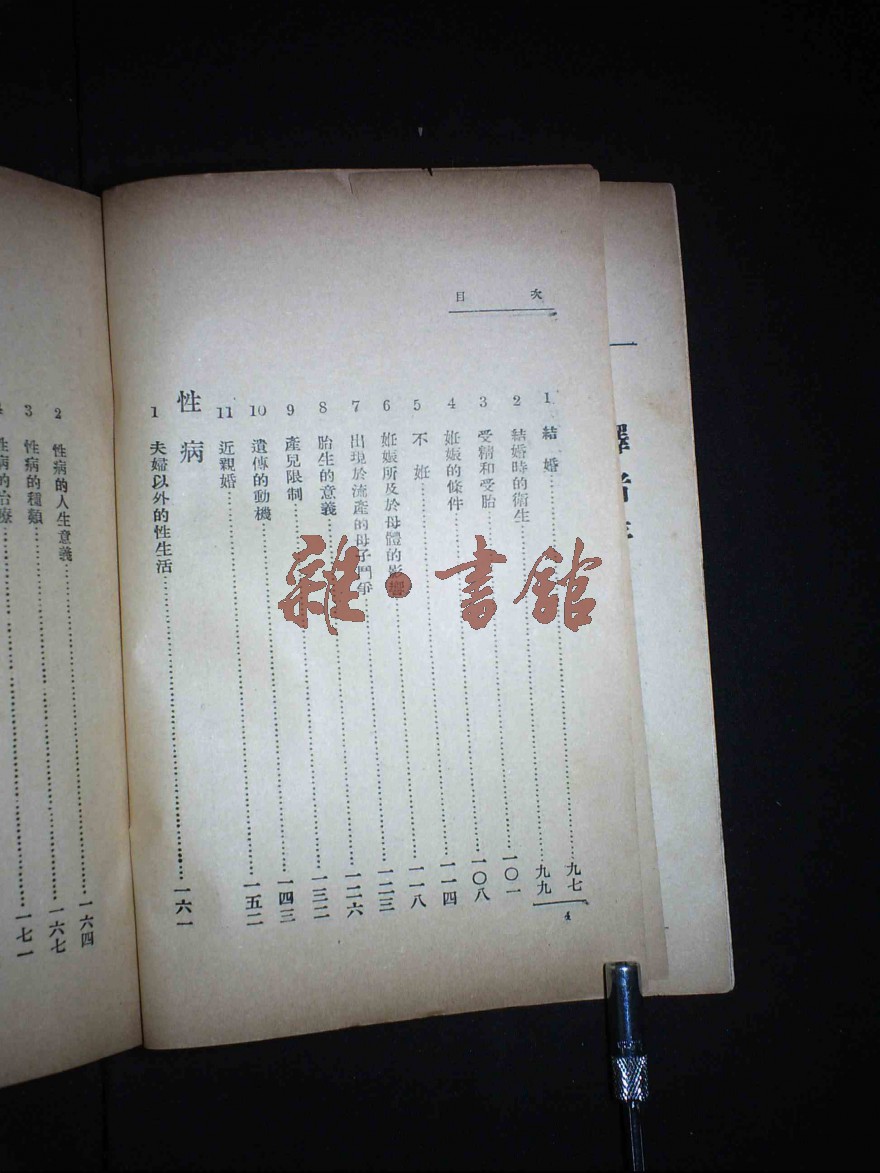 目次
1 結婚……九七
2 結婚時的衛生……九九
3 受精和受胎……一〇一
4 妊娠的條件……一〇八
5 不妊……一一四
6 妊娠所及於母體的影響……一一八
7 出現於流產的母子鬥爭……一二三
8 胎生的意義……一二六
9 產兒限制……一三二
10 遺傳的動機……一四三
11 近親婚……一五二
性病
1 夫婦以外的性生活……一六一
4
2 性病的人生意義……一六四
3 性病的種類……一六七
4 性病的治療……一七一
雜·書館